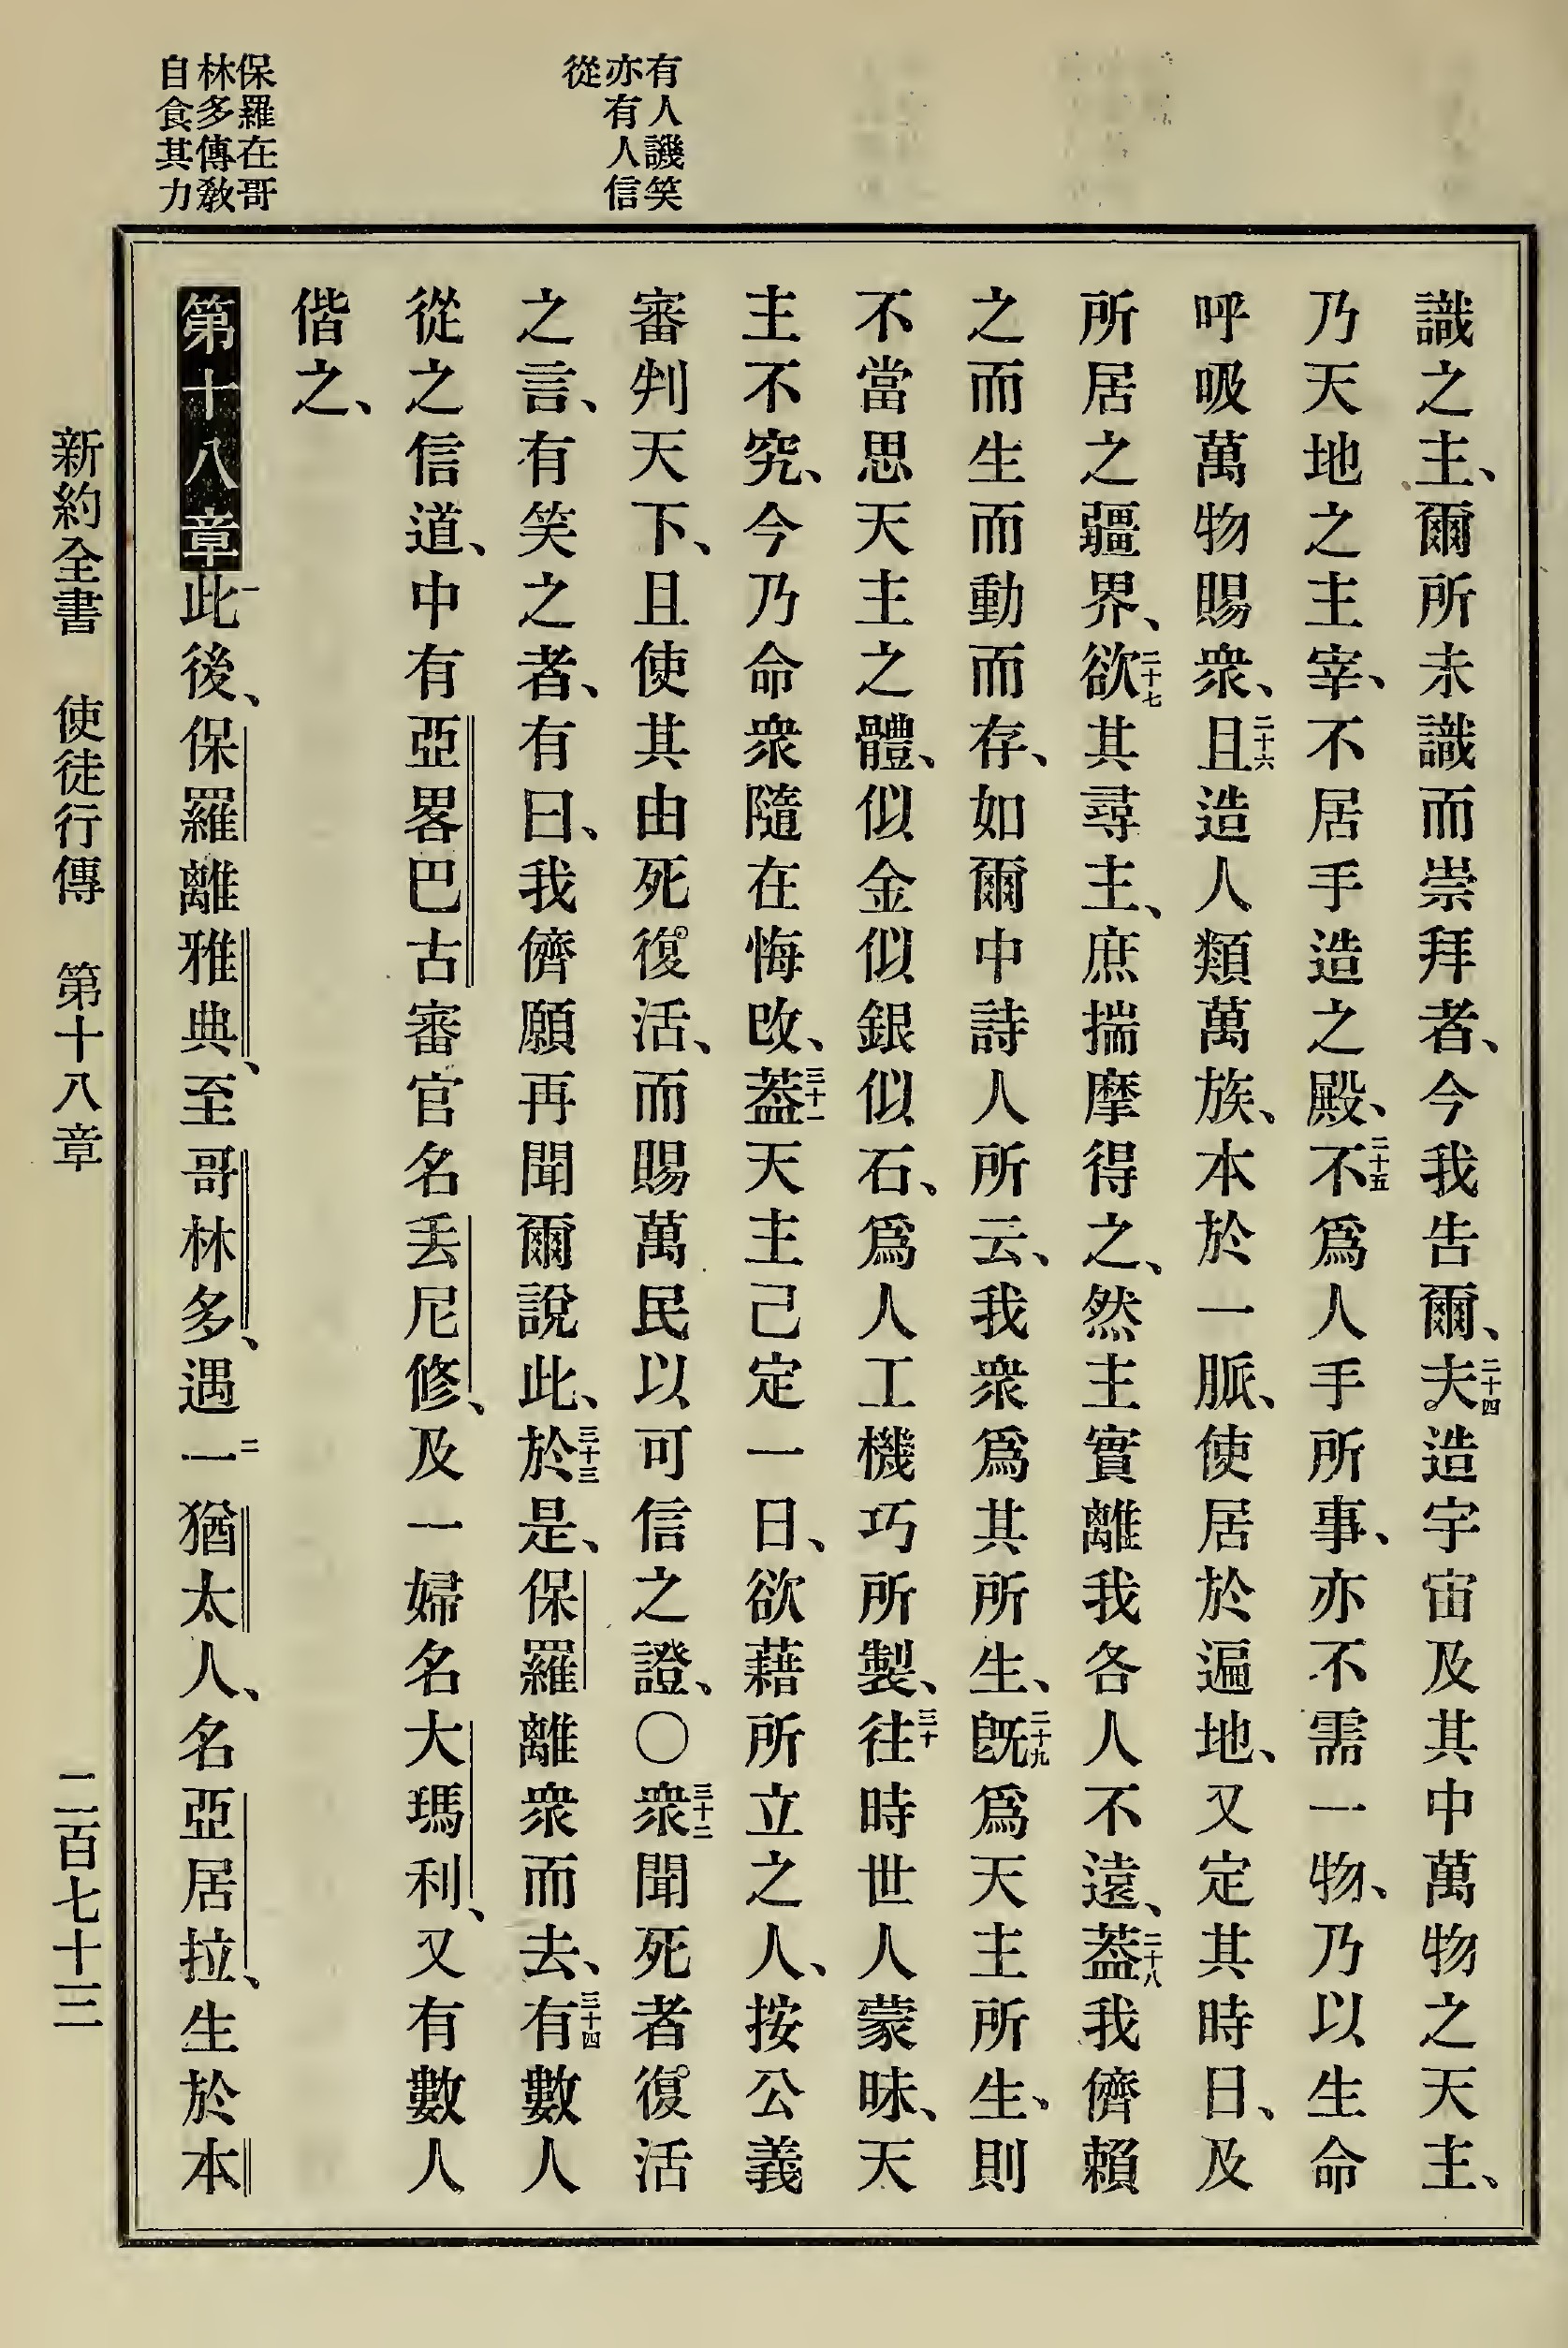 有人譏笑
亦有人信
從
保羅在哥
林多傳敎
自食其力
識之主、爾所未識而崇拜者、今我告爾、二十四夫造宇宙及其中萬物之天主、
乃天地之主宰、不居手造之殿、二十五不爲人手所事、亦不需一物、乃以生命
呼吸萬物賜衆、二十六且造人類萬族、本於一脈、使居於遍地、又定其時日、及
所居之疆界、二十七欲其尋主、庶揣摩得之、然主實離我各人不遠、二十八蓋我儕賴
之而生而動而存、如爾中詩人所云、我衆爲其所生、二十九旣爲天主所生、則
不當思天主之體、似金似銀似石、爲人工機巧所製、三十往時世人蒙昧、天
主不究、今乃命衆隨在悔改、三十一蓋天主己定一日、欲藉所立之人、按公義
審判天下、且使其由死復活、而賜萬民以可信之證、〇三十二衆聞死者復活
之言、有笑之者、有曰、我儕願再聞爾說此、三十三於是、保羅離衆而去、三十四有數人
從之信道、中有亞畧巴古審官名丢尼修、及一婦名大瑪利、又有數人
偕之、
第十八章一此後、保羅離雅典、至哥林多、遇二一猶太人、名亞居拉、生於本
新約全書 使徒行傳 第十八章 二百七十三